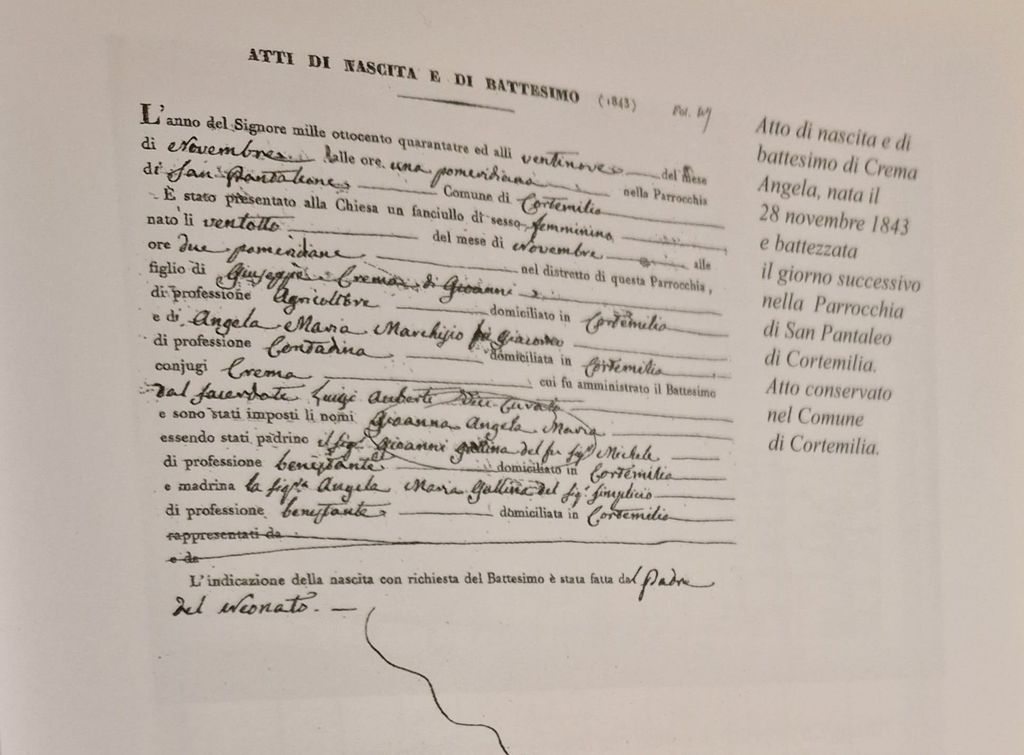 ATTI DI NASCITA E DI BATTESIMO (1843)
L'anno del Signore mille ottocento quarantatre ed alli ventinove del mese
di Novembre alle ore una pomeridiana nella Parrocchia
di San Pantaleone Comune di Cortemilia
È stato presentato alla Chiesa un fanciullo di sesso femminino
nato li ventotto del mese di Novembre alle
ore due pomeridiane nel distretto di questa Parrocchia,
figlio di Giuseppe Crema di Gioanni
di professione Agricoltore domiciliato in Cortemilia
e di Angela Maria Marchisio fu Giacomo
di professione Contadina domiciliata in Cortemilia
conjugi Crema cui fu amministrato il Battesimo
dal sacerdote Luigi Auberti Vice Curato
e sono stati imposti li nomi Gioanna Angela Maria
essendo stati padrino il sig.r Gioanni Gallina del fu sig.r Michele
di professione benestante domiciliato in Cortemilia
e madrina la sig.ra Angela Maria Gallina del sig.r Simplicio
di professione benestante domiciliata in Cortemilia
rappresentati da
e da
L'indicazione della nascita con richiesta del Battesimo è stata fatta dal Padre
del Neonato.
Atto di nascita e di
battesimo di Crema
Angela, nata il
28 novembre 1843
e battezzata
il giorno successivo
nella Parrocchia
di San Pantaleo
di Cortemilia.
Atto conservato
nel Comune
di Cortemilia.